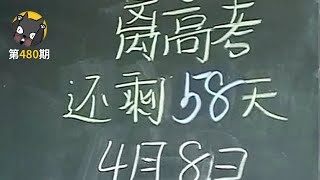 第480期
离高考
还剩58天
4月8日